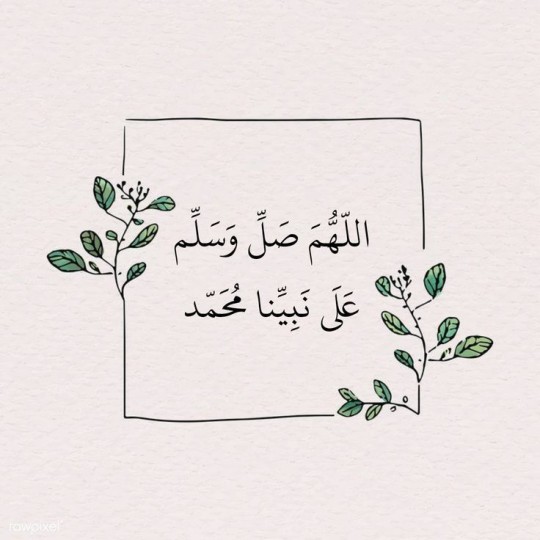 اللّهُمَ صَلِّ وَسَلِّم
عَلَى نَبِيِّنا مُحَمّد
rawpixel